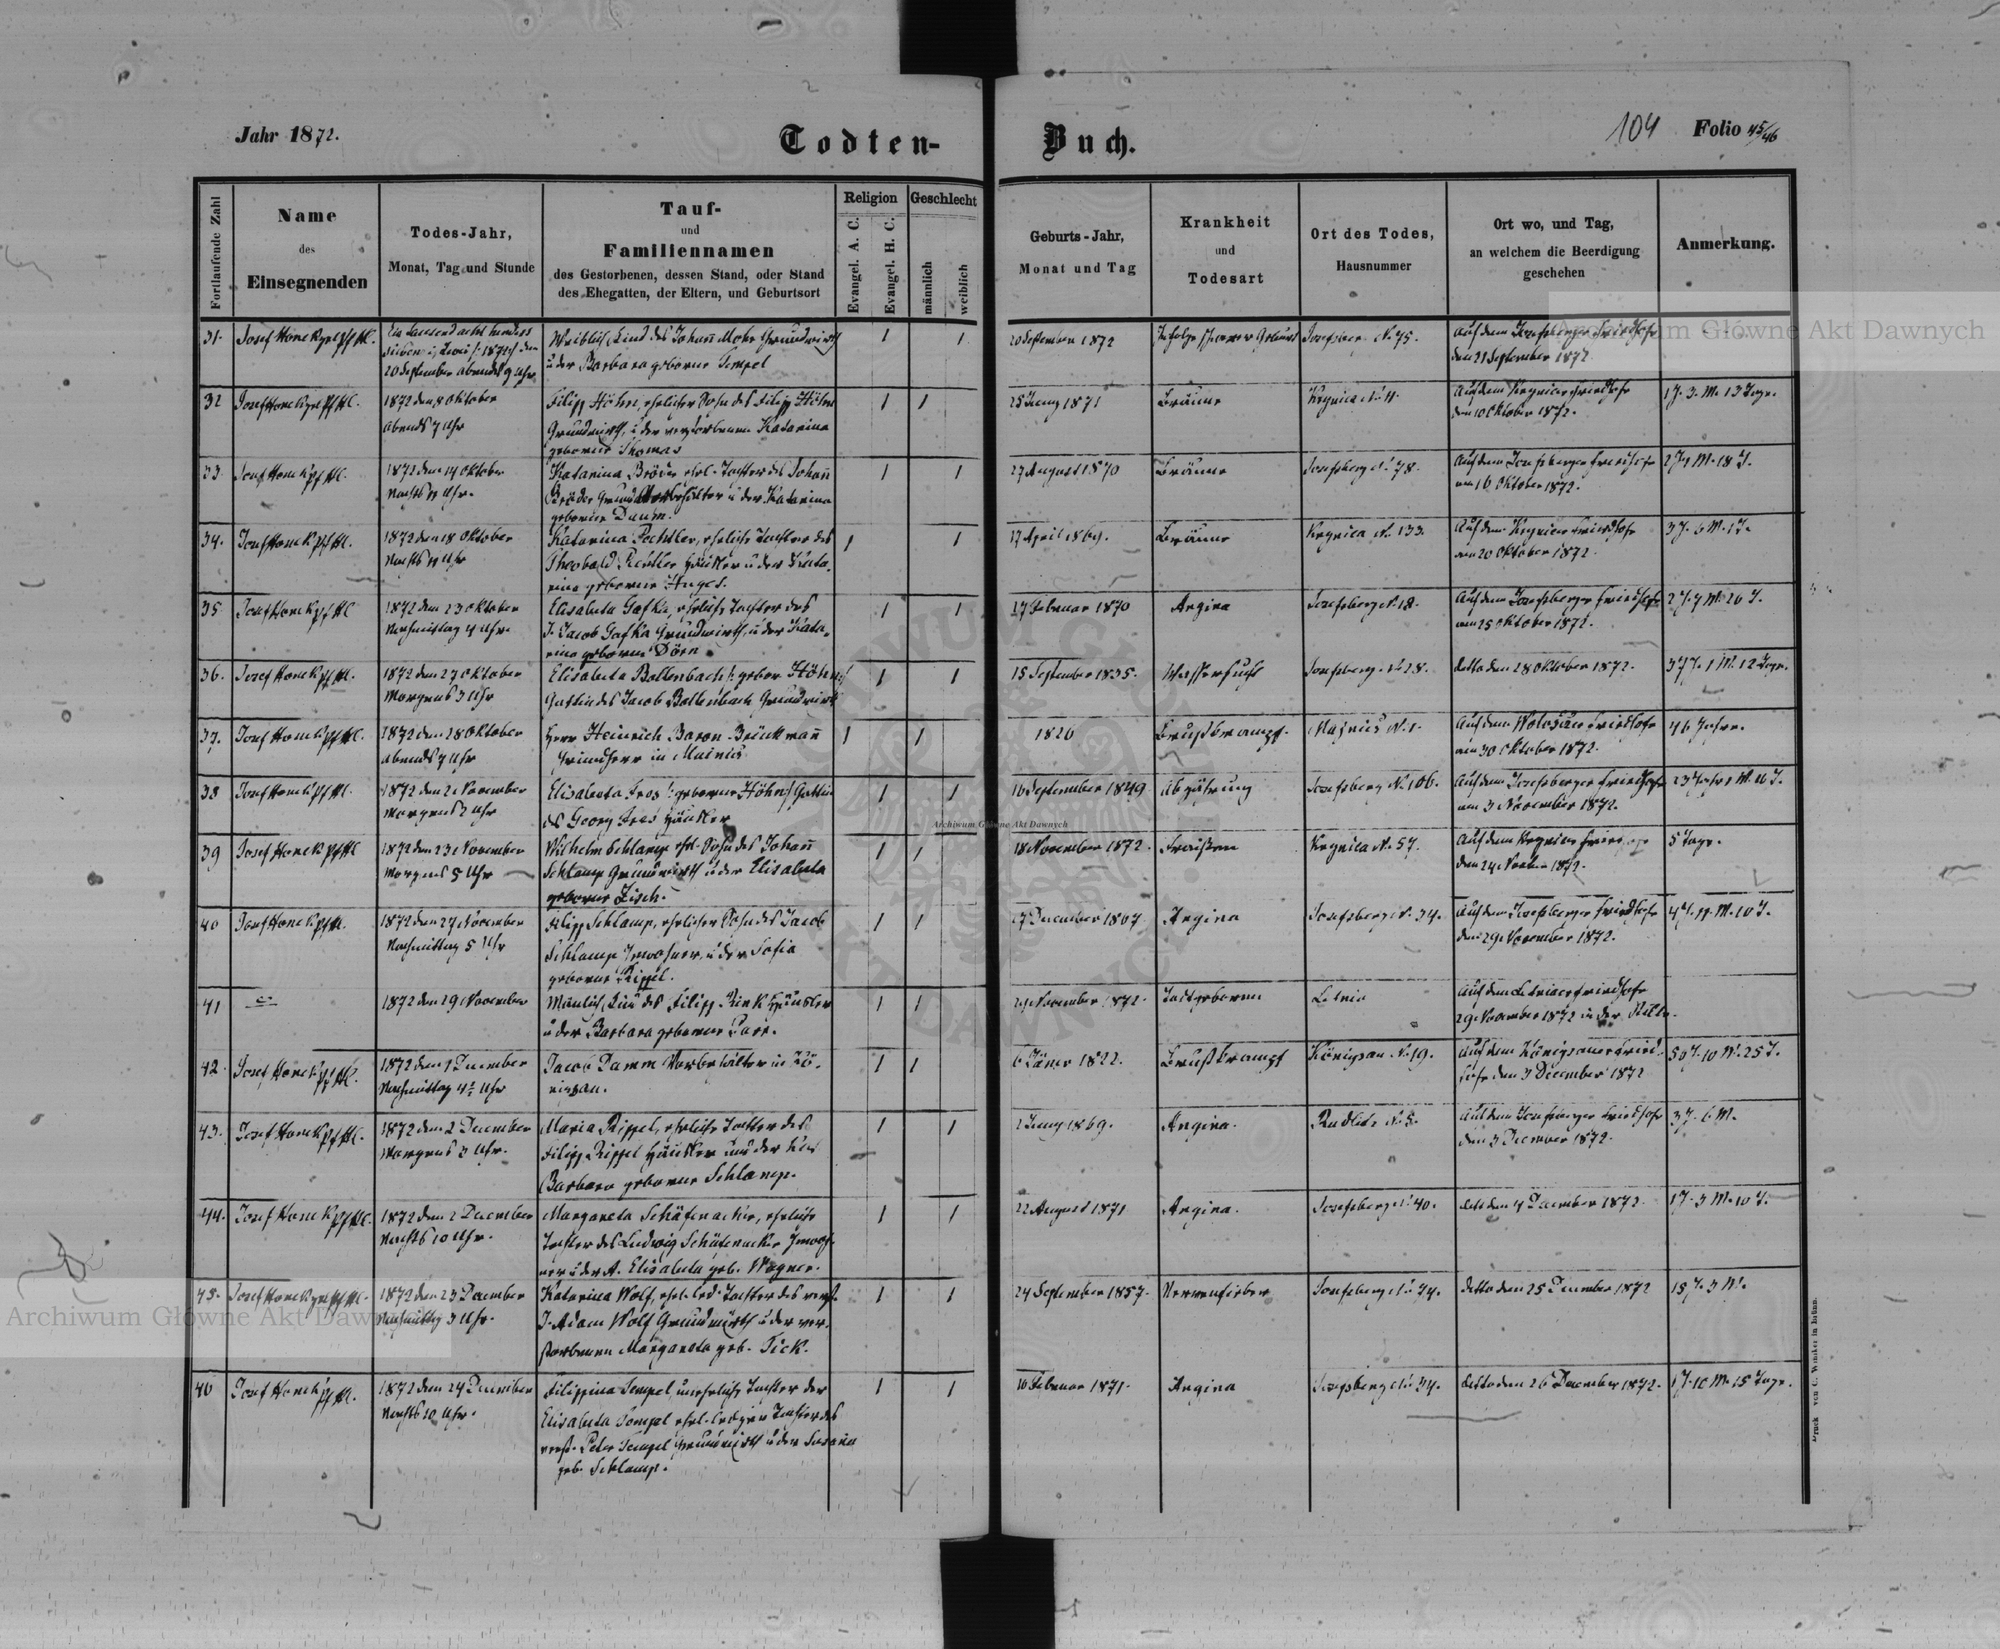 Jahr 1872.
Todten-Buch.
104 Folio 45/46
Fortlaufende Zahl
Name
des
Einsegnenden
Todes-Jahr,
Monat, Tag und Stunde
Tauf-
und
Familiennamen
des Gestorbenen, dessen Stand, oder Stand
des Ehegatten, der Eltern, und Geburtsort
Religion
Evangel. A. C.
Evangel. H. C.
Geschlecht
männlich
weiblich
Geburts-Jahr,
Monat und Tag
Krankheit
und
Todesart
Ort des Todes,
Hausnummer
Ort wo, und Tag,
an welchem die Beerdigung
geschehen
Anmerkung.
31. Josef Honek
Ein tausend acht hundert
siebenzig zwei 1872 den
20 September abends 9 Uhr
Weiblich Kind des Johann Mohr Grundwirth
u der Barbara geborene Tempel
1 1
20 September 1872
Josefsberg N. 75.
Auf dem Josefsberger Friedhofe
den 21 September 1872
32 Josef Honek
1872 den 8 Oktober
abends 7 Uhr
Filipp Höhn, ehelicher Sohn des Filipp Höhn
Grundwirth, u der verstorbenen Katarina
geborene Thomas
1 1
25 Juny 1871
Bräune
Krynica N. 11.
Auf dem Krynicer Friedhofe
den 10 Oktober 1872.
1 J. 3. M. 13 Tage.
33 Josef Honek
1872 den 14 Oktober
Nachts 11 Uhr.
Katarina Bröder ehel. Tochter des Johann
Bröder u der Katarina
geborene Daum.
1 1
27 August 1870
Bräune
Josefsberg N. 78.
Auf dem Josefsberger Friedhofe
am 16 Oktober 1872.
2 J 1 M. 18 T.
34. Josef Honek
1872 den 18 Oktober
Nachts 11 Uhr
Katarina Pechtler, eheliche Tochter des
Theobald Pechtler Häusler u der Kata-
rina geborene Huges.
1 1
17 April 1869.
Bräune
Krynica N. 133.
Auf dem Krynicer Friedhofe
am 20 Oktober 1872.
3 J. 6 M. 1 T.
35 Josef Honek
1872 den 23 Oktober
Nachmittag 4 Uhr.
Elisabeta Gafka, eheliche Tochter des
J. Jacob Gafka Grundwirth, u der Kata-
rina geborene Dörn
1 1
27 Februar 1870
Angina
Josefsberg N. 18.
Auf dem Josefsberger Friedhofe
am 25 Oktober 1872.
2 J. 7 M. 26 T.
36. Josef Honek
1872 den 27 Oktober
Morgens 3 Uhr
Elisabeta Bollenbach geborene Höhn
Gattin des Jacob Bollenbach Grundwirth
1 1
15 September 1835.
Wassersucht
Josefsberg N. 28.
detto den 28 Oktober 1872.
37 J. 1 M. 12 Tage.
37. Josef Honek
1872 den 28 Oktober
abends 7 Uhr
Herr Heinrich Baron Brükmann
Grundherr in Mainis
1 1
1826
Brustkrampf.
N. 1.
am 30 Oktober 1872.
46 Jahre.
38 Josef Honek
1872 den 2 November
Morgens 2 Uhr
Elisabeta Fres geborene Höhn Gattin
des Georg Fres Häusler
1 1
16 September 1849
Abzehrung
Josefsberg N. 106.
Auf dem Josefsberger Friedhofe
am 3 November 1872.
23 Jahre 1 M. 16 T.
39 Josef Honek
1872 den 23 November
Morgens 5 Uhr
Wilhelm Schlamp ehel. Sohn des Johann
Schlamp Grundwirth u der Elisabeta
geborene Zisch.
1 1
18 November 1872.
Fraißen
Krynica N. 57.
Auf dem Krynicer Friedhofe
den 24 1872.
5 Tage.
40 Josef Honek
1872 den 27 November
Nachmittag 5 Uhr
Filipp Schlamp, ehelicher Sohn des Jacob
Schlamp Inwohner, u der Sofia
geborene Rippel.
1 1
17 December 1867
Angina
Josefsberg N. 34.
Auf dem Josefsberger Friedhofe
den 29 November 1872.
4 J. 11. M. 10 T.
41
1872 den 29 November
Mänlich Kind des Filipp Rink Häusler
u der Barbara geborene
1 1
29 November 1872.
Todtgeboren
Letnia
Auf dem Letniaer Friedhofe
29 November 1872 in der
42. Josef Honek
1872 den 1 December
Nachmittag 4½ Uhr
Jacob Damm Vorbehälter in Kö-
nigsau.
1 1
6 Jäner 1822.
Brustkrampf
Königsau N. 19.
Auf dem Königsauer Fried-
hofe den 3 December 1872
50 J. 10 M. 25 T.
43. Josef Honek
1872 den 2 December
Morgens 3 Uhr.
Maria Rippel, eheliche Tochter des
Filipp Rippel Häusler und der
Barbara geborene Schlamp.
1 1
2 Juny 1869.
Angina.
N. 5.
Auf dem Josefsberger Friedhofe
den 3 December 1872.
3 J. 6 M.
44. Josef Honek
1872 den 2 December
Nachts 10 Uhr.
Margareta Schäfenacker, eheliche
Tochter des Ludwig Schäfenacker Inwoh-
ner u der A. Elisabeta geb. Wagner.
1 1
22 August 1871
Angina.
Josefsberg N. 40.
detto den 4 December 1872.
1 J. 3 M. 10 T.
45. Josef Honek
1872 den 23 December
Nachmittag 3 Uhr.
Katarina Wolf, ehel. led. Tochter des verst.
J. Adam Wolf Grundwirth u der ver-
storbenen Margareta geb. Fick.
1 1
24 September 1857.
Nervenfieber
Josefsberg N. 74.
detto den 25 December 1872
15 J. 3 M.
46 Josef Honek
1872 den 24 December
Nachts 10 Uhr.
Filippina Tempel, uneheliche Tochter der
Elisabeta Tempel ehel. ledigen Tochter des
verst. Peter Tempel Grundwirth u der Susana
geb. Schlamp.
1 1
16 Februar 1871.
Angina
Josefsberg N. 34.
detto den 26 December 1872.
1 J. 10 M. 15 Tage.
Druck von C. Winiker in Brünn.
Archiwum Główne Akt Dawnych
Archiwum Główne Akt Dawnych
Archiwum Główne Akt Dawnych